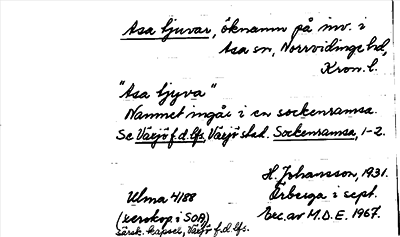 Asa tjuvar, öknamn på inv. i
Asa sn, Norrvidinge hd,
Kron. l.
"Asa tjyva"
Namnet ingår i en sockenramsa.
Se Växjö f.d. lfs, Växjö stad. Sockenramsa, 1-2.
H. Johansson, 1931.
Ulma 4188
Örberga i sept.
(xerokop. i SOA)
Exc. av M.D.E. 1967.
särsk. kapsel, Växjö f.d. lfs.